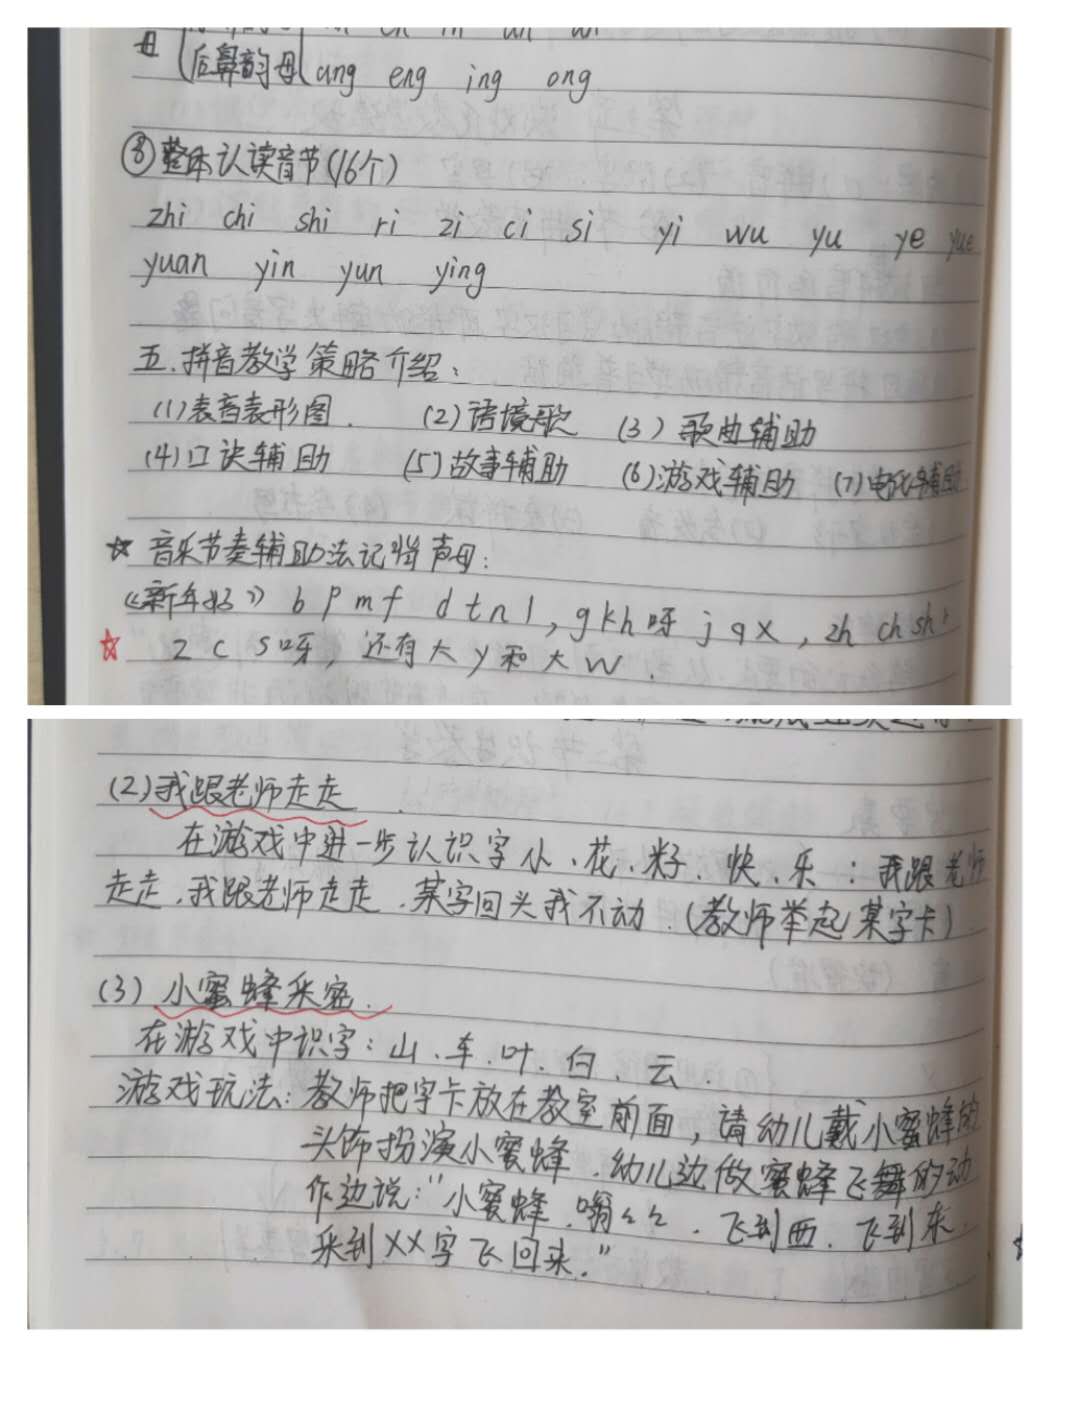 母 后鼻韵母 ang eng ing ong
⑧整体认读音节(16个)
zhi chi shi ri zi ci si yi wu yu ye yue
yuan yin yun ying
五.拼音教学策略介绍:
(1)表音表形图. (2)语境歌 (3)歌曲辅助
(4)口诀辅助 (5)故事辅助 (6)游戏辅助 (7)电脑辅助
☆ 音乐节奏辅助法记忆声母:
《新年好》 b p m f d t n l, g k h 呀 j q x, zh ch sh r
☆ z c s 呀, 还有大 y 和大 w.
(2)我跟老师走走
在游戏中进一步认识字 小、花、籽、快、乐: 我跟老师
走走.我跟老师走走.某字回头我不动.(教师举起某字卡)
(3)小蜜蜂采密.
在游戏中识字: 山、车.叶、白、云.
游戏玩法: 教师把字卡放在教室前面, 请幼儿戴小蜜蜂的
头饰扮演小蜜蜂.幼儿边做蜜蜂飞舞的动
作边说:"小蜜蜂.嗡々々. 飞到西.飞到东.
采到××字飞回来."